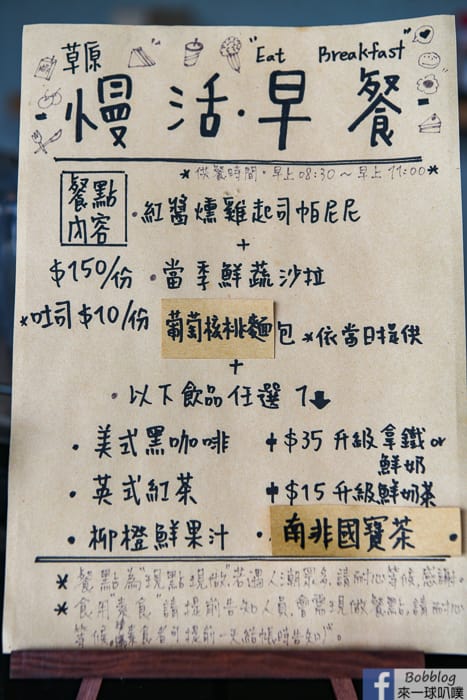 草原 "Eat Breakfast"
慢活·早餐
*供餐時間·早上08:30~早上11:00*
餐點內容
·紅醬燻雞起司帕尼尼
+
$150/份 ·當季鮮蔬沙拉
*吐司$10/份 葡萄核桃麵包 *依當日提供
+
·以下飲品任選1↓
·美式黑咖啡 +$35升級拿鐵or鮮奶
·英式紅茶 +$15升級鮮奶茶
·柳橙鮮果汁 ·南非國寶茶
*餐點為"現點現做"若遇人潮眾多,請耐心等候,感謝。
*食用"素食"請提前告知人員,會需現做餐點,請耐心
等候。(素食者可提前一天結帳時告知)。
Bobblog
來一球叭噗